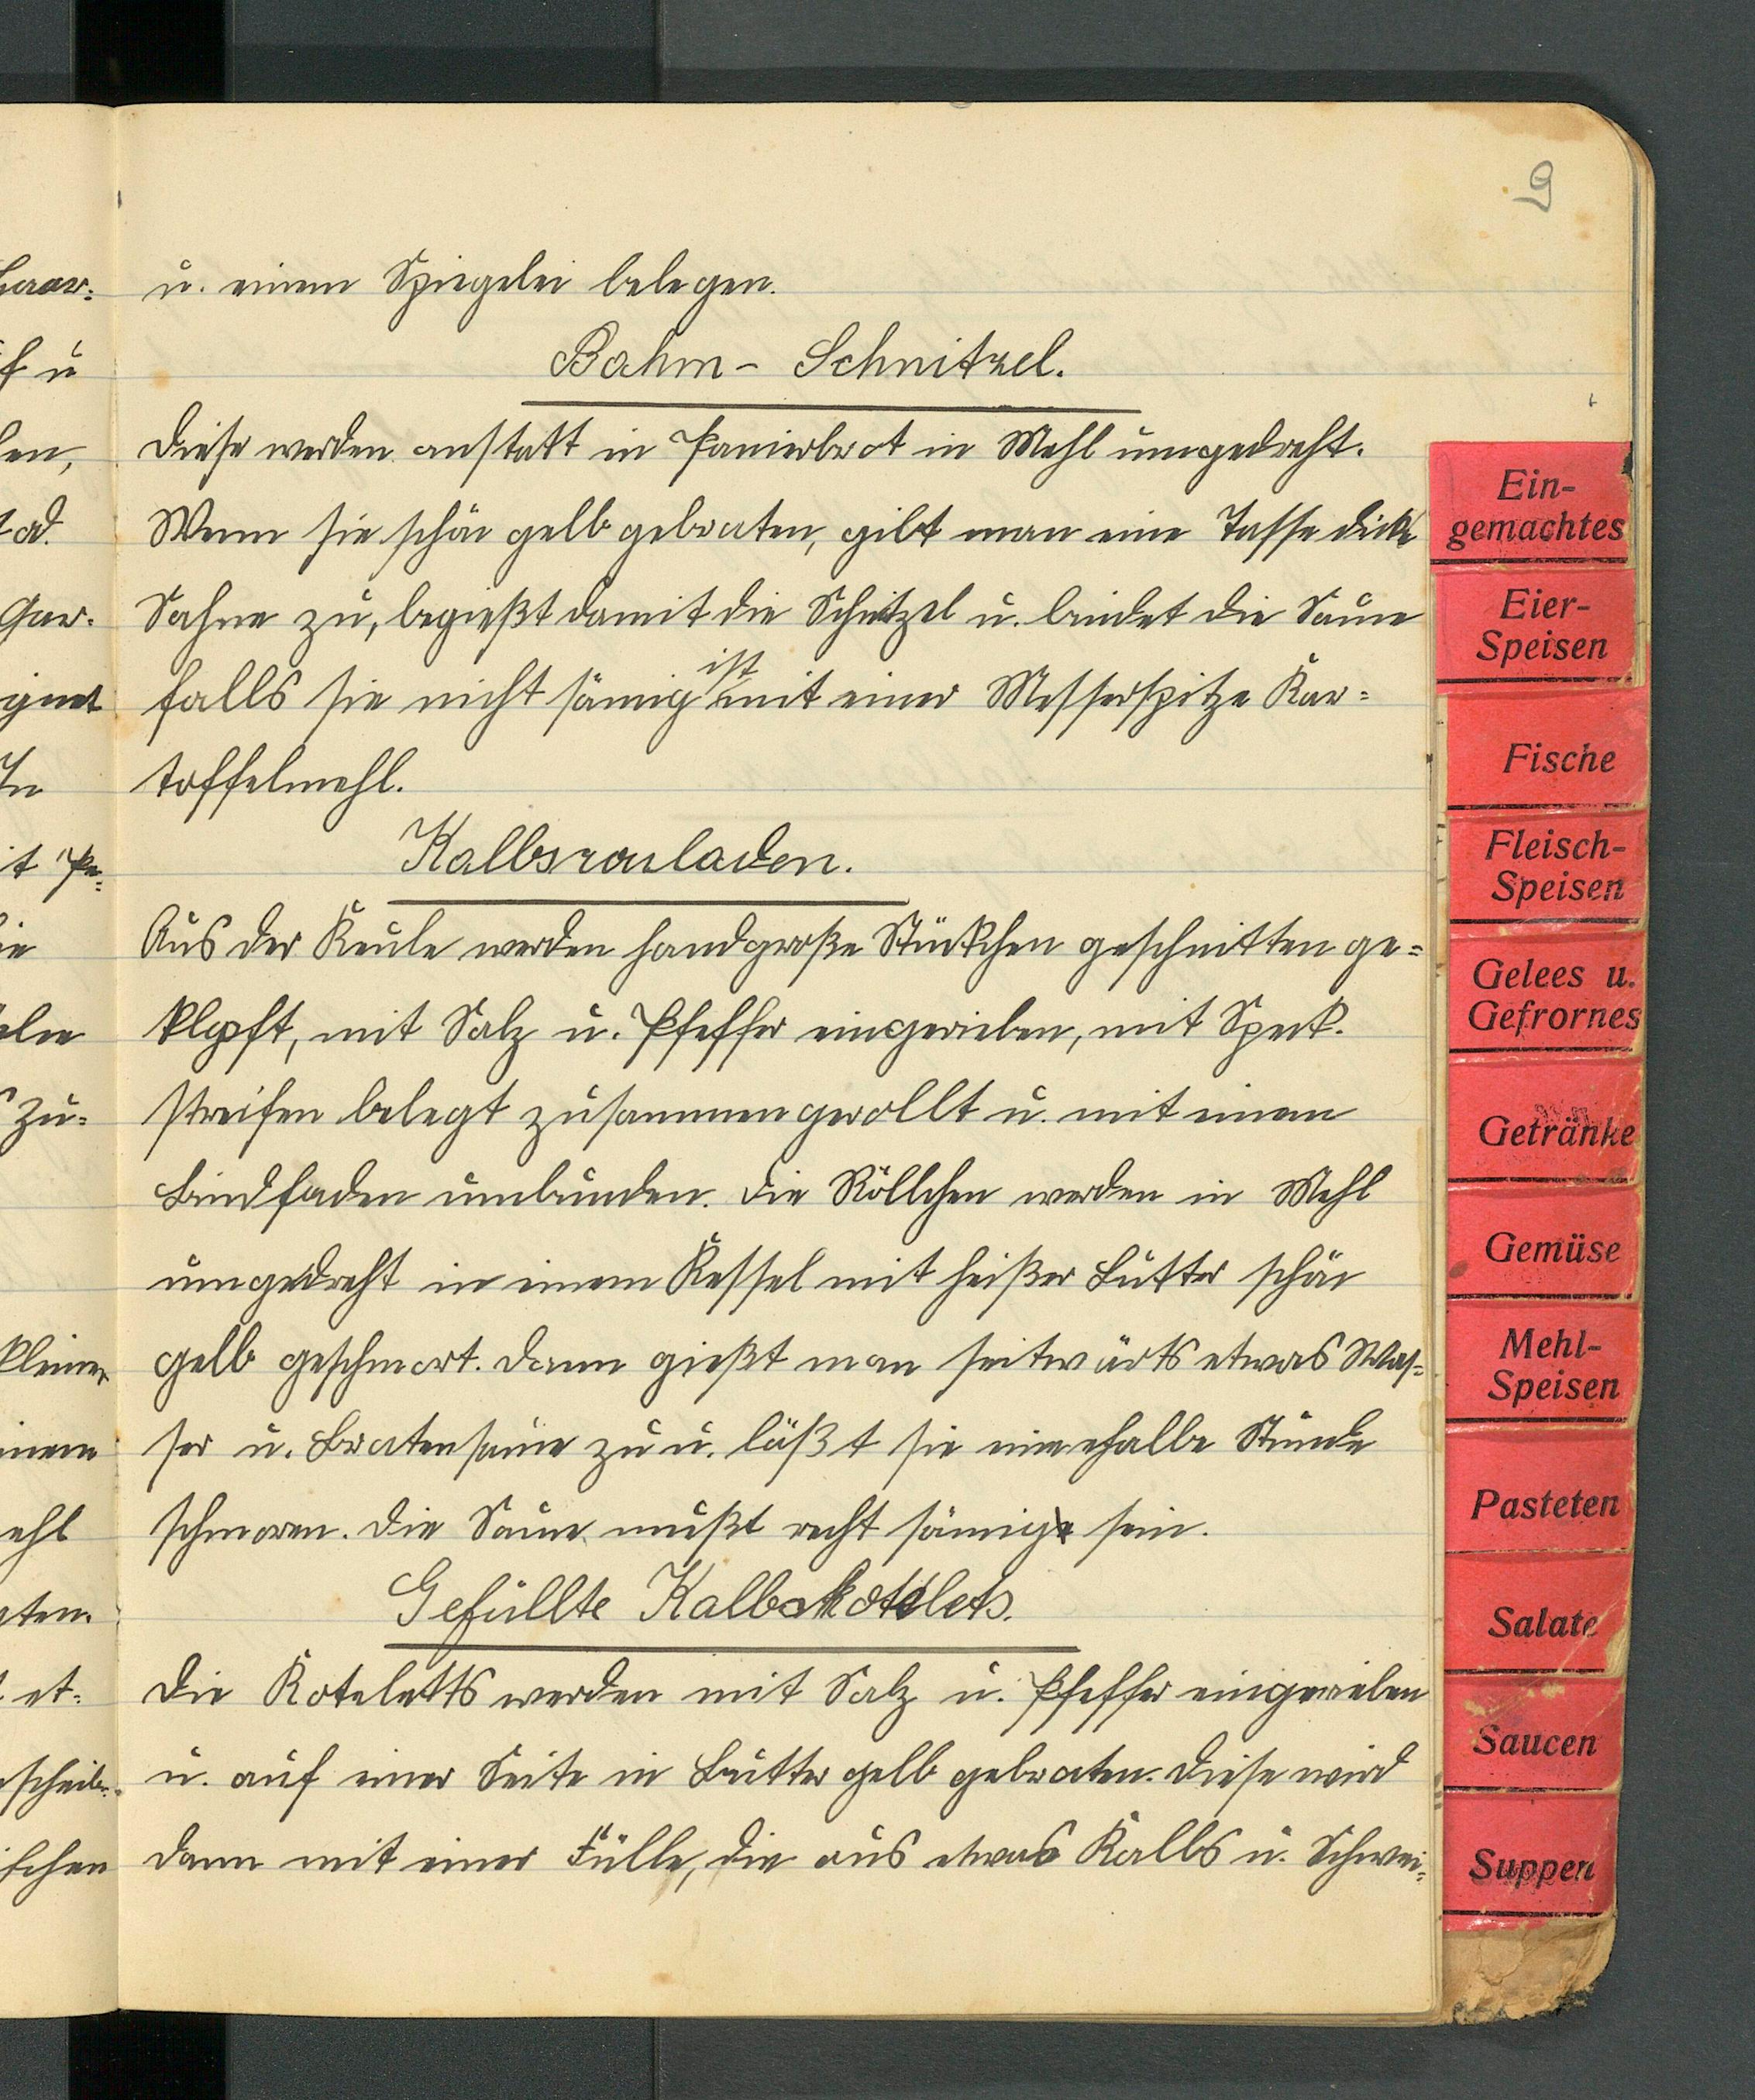 9
u. einem Spiegelei belegen.
Bahm- Schnitzel.
Diese werden anstatt in Panierbrot in Mehl umgedreht.
Wenn sie schön gelb gebraten, gibt man eine Tasse dicke
Sahne zu, begießt damit die Schnitzel u. bindet die Sauce
falls sie nicht sämig ist mit einer Messerspitze Kar=
toffelmehl.
Kalbsrouladen.
Aus der Keule werden handgroße Stückchen geschnitten ge=
klopft, mit Salz u. Pfeffer eingerieben, mit Speck-
streifen belegt zusammengerollt u. mit einem
Bindfaden umbunden. Die Röllchen werden in Mehl
umgedreht in einem Kessel mit heißer Butter schön
gelb geschmort. Dann gießt man seitwärts etwas Was=
ser u. Bratensauce zu u. läßt sie eine halbe Stunde
schmoren. Die Sauce mußt recht sämig sein.
Gefüllte Kalbskotelets.
Die Koteletts werden mit Salz u. Pfeffer eingerieben
u. auf einer Seite in Butter gelb gebraten. Diese wird
dann mit einer Fülle, die aus etwas Kalbs u. Schwei=
Ein-
gemachtes
Eier-
Speisen
Fische
Fleisch-
Speisen
Gelees u.
Gefrornes
Getränke
Gemüse
Mehl-
Speisen
Pasteten
Salate
Saucen
Suppen